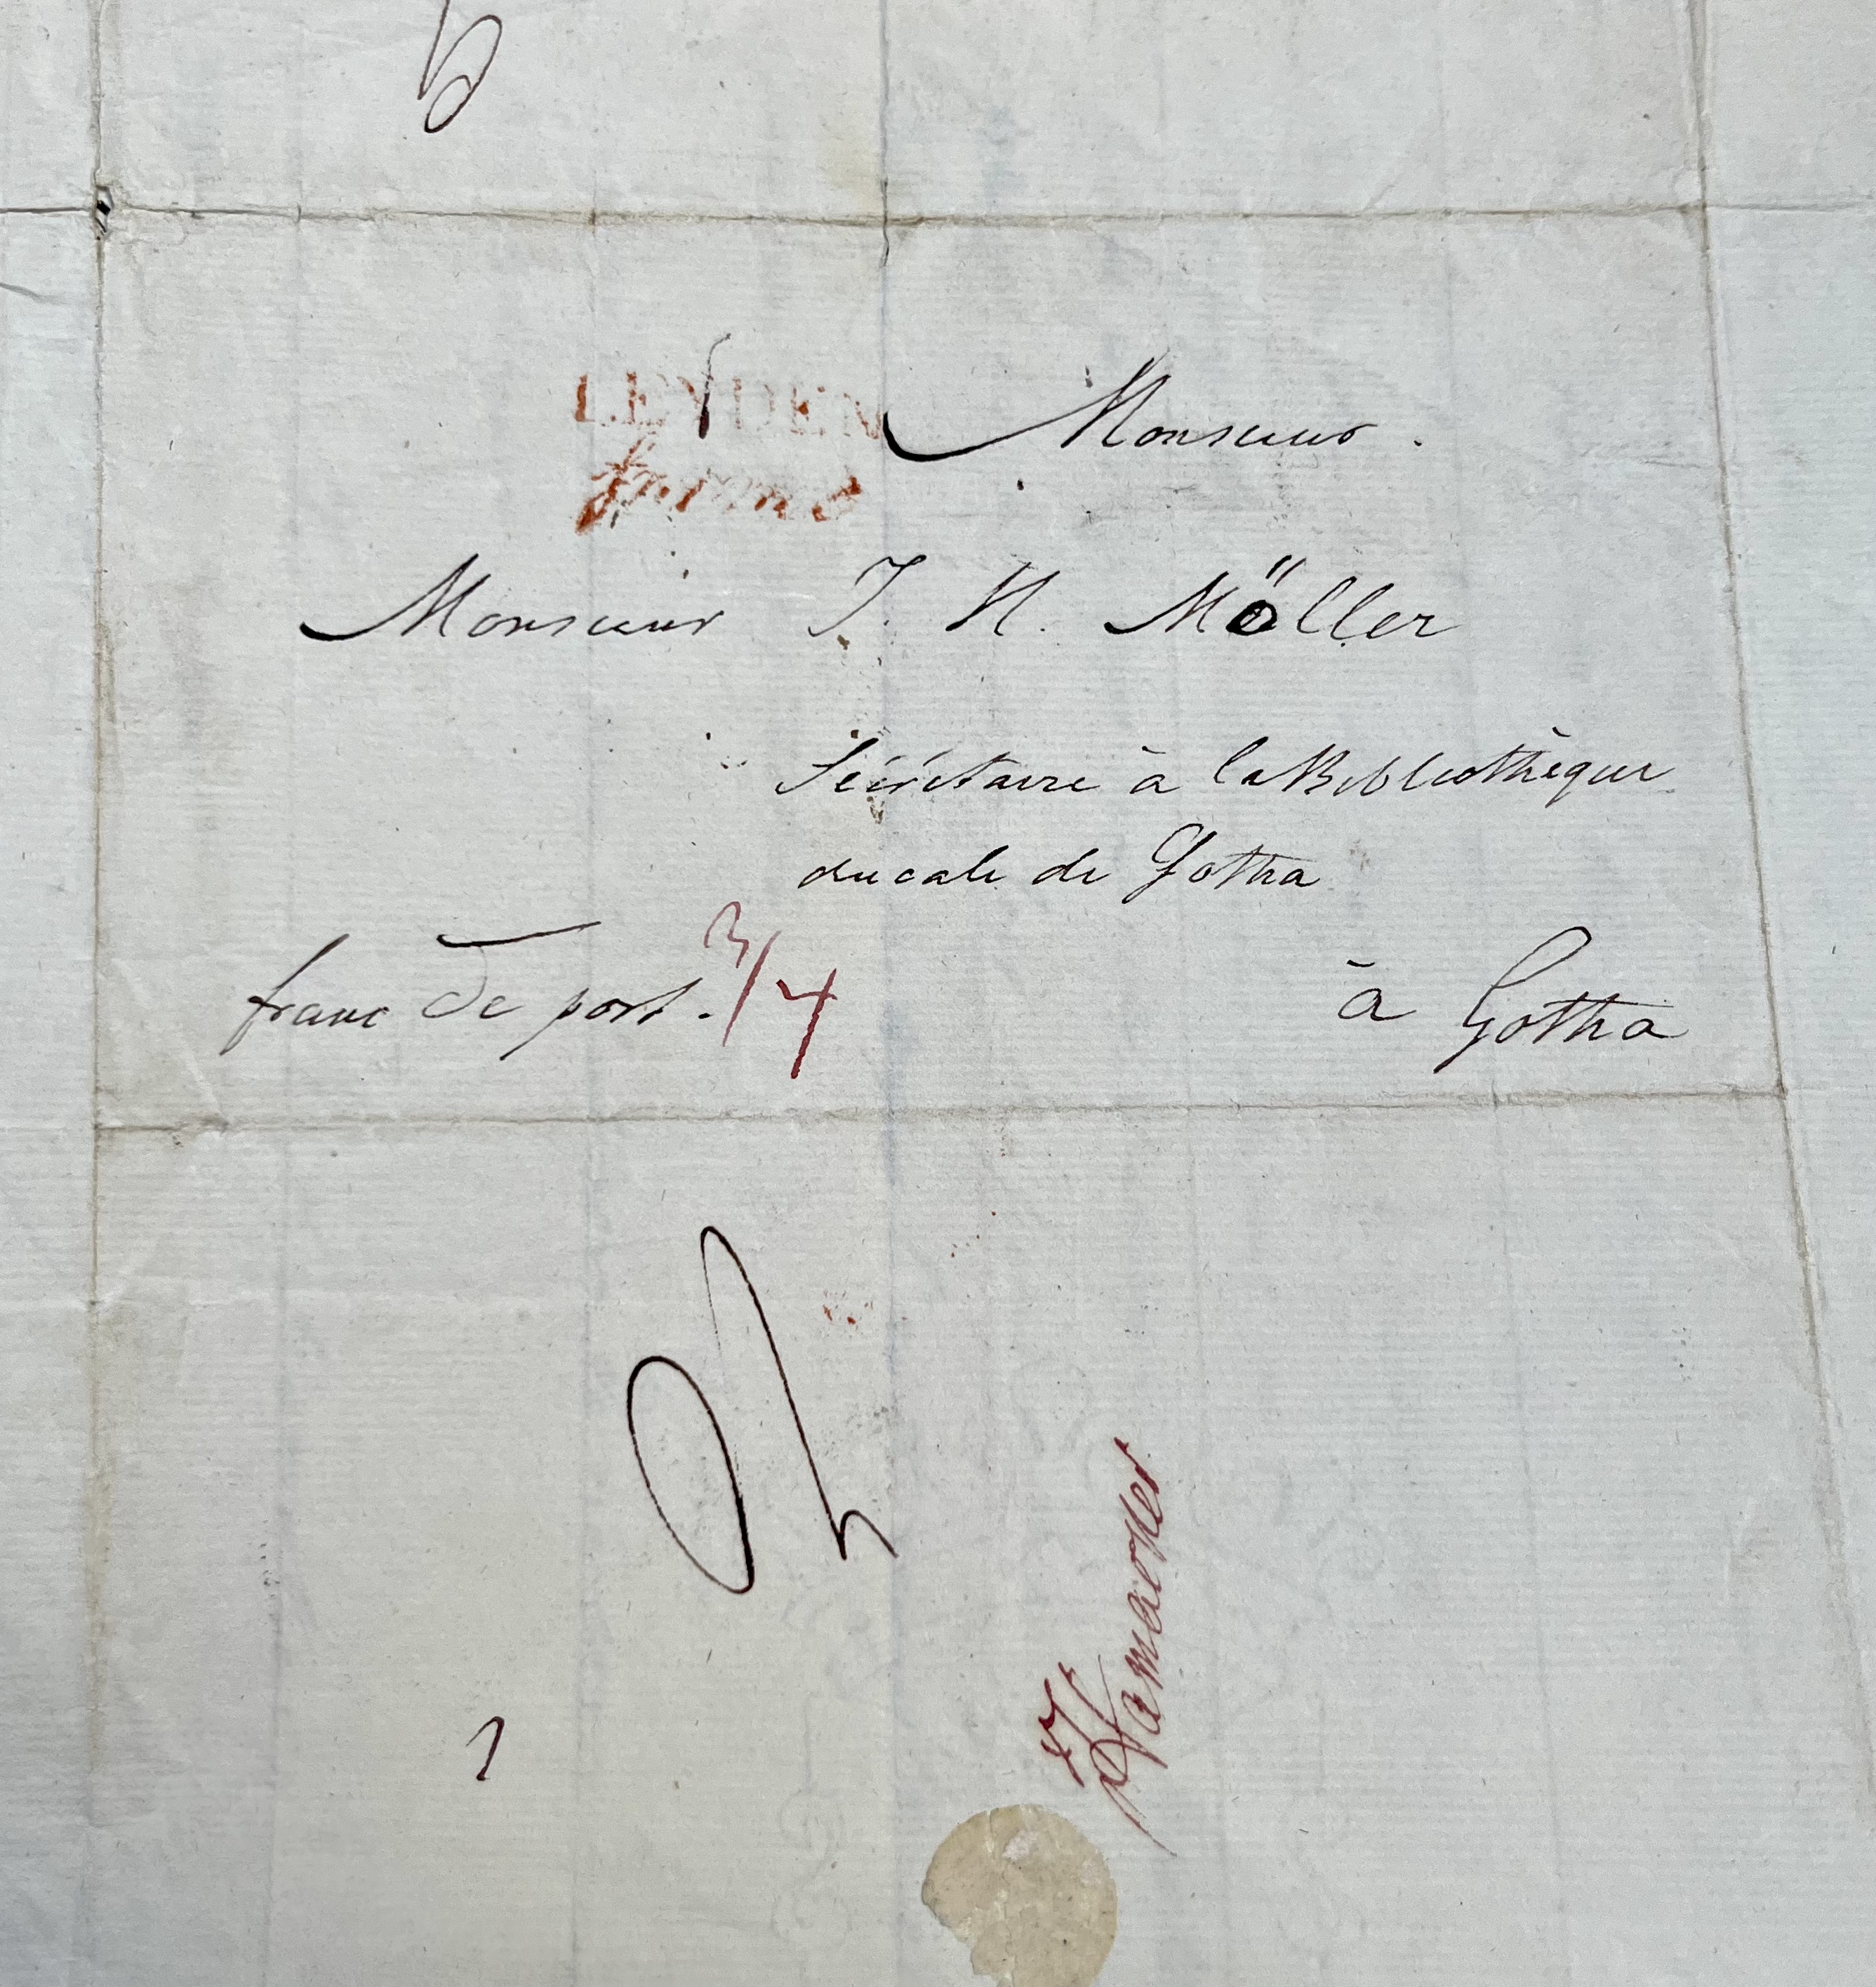 LEYDEN
franco
Monsieur.
Monsieur J. H. Möller
Sécrétaire à la Bibliothèque
ducale de Gotha
franc de port. 3/4
à Gotha
Hamaeker
1